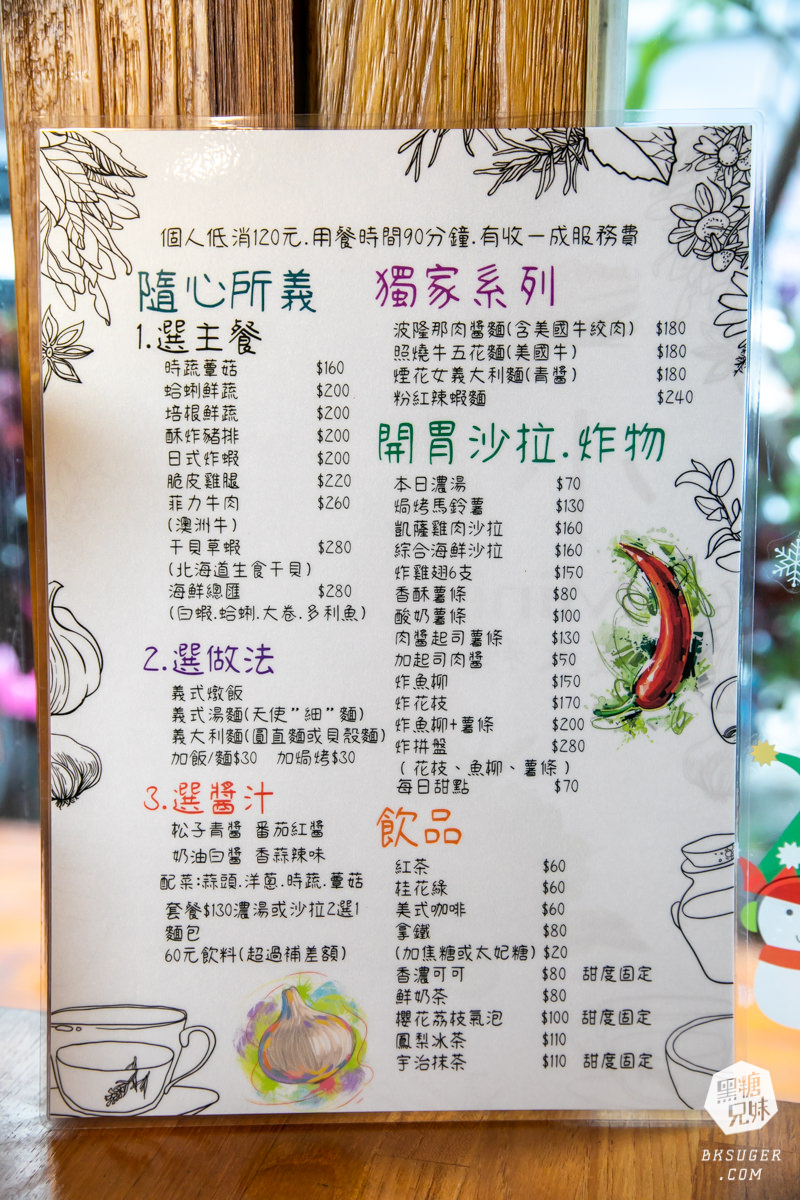 個人低消120元.用餐時間90分鐘.有收一成服務費
隨心所義
1.選主餐
時蔬蕈菇 $160
蛤蜊鮮蔬 $200
培根鮮蔬 $200
酥炸豬排 $200
日式炸蝦 $200
脆皮雞腿 $220
菲力牛肉 $260
(澳洲牛)
干貝草蝦 $280
(北海道生食干貝)
海鮮總匯 $280
(白蝦.蛤蜊.大卷.多利魚)
2.選做法
義式燉飯
義式湯麵(天使"細"麵)
義大利麵(圓直麵或貝殼麵)
加飯/麵$30 加焗烤$30
3.選醬汁
松子青醬 番茄紅醬
奶油白醬 香蒜辣味
配菜:蒜頭.洋蔥.時蔬.蕈菇
套餐$130濃湯或沙拉2選1
麵包
60元飲料(超過補差額)
獨家系列
波隆那肉醬麵(含美國牛絞肉) $180
照燒牛五花麵(美國牛) $180
煙花女義大利麵(青醬) $180
粉紅辣蝦麵 $240
開胃沙拉.炸物
本日濃湯 $70
焗烤馬鈴薯 $130
凱薩雞肉沙拉 $160
綜合海鮮沙拉 $160
炸雞翅6支 $150
香酥薯條 $80
酸奶薯條 $100
肉醬起司薯條 $130
加起司肉醬 $50
炸魚柳 $150
炸花枝 $170
炸魚柳+薯條 $200
炸拼盤 $280
(花枝、魚柳、薯條)
每日甜點 $70
飲品
紅茶 $60
桂花綠 $60
美式咖啡 $60
拿鐵 $80
(加焦糖或太妃糖) $20
香濃可可 $80 甜度固定
鮮奶茶 $80
櫻花荔枝氣泡 $100 甜度固定
鳳梨冰茶 $110
宇治抹茶 $110 甜度固定
黑糖
兄妹
BKSUGER
.COM